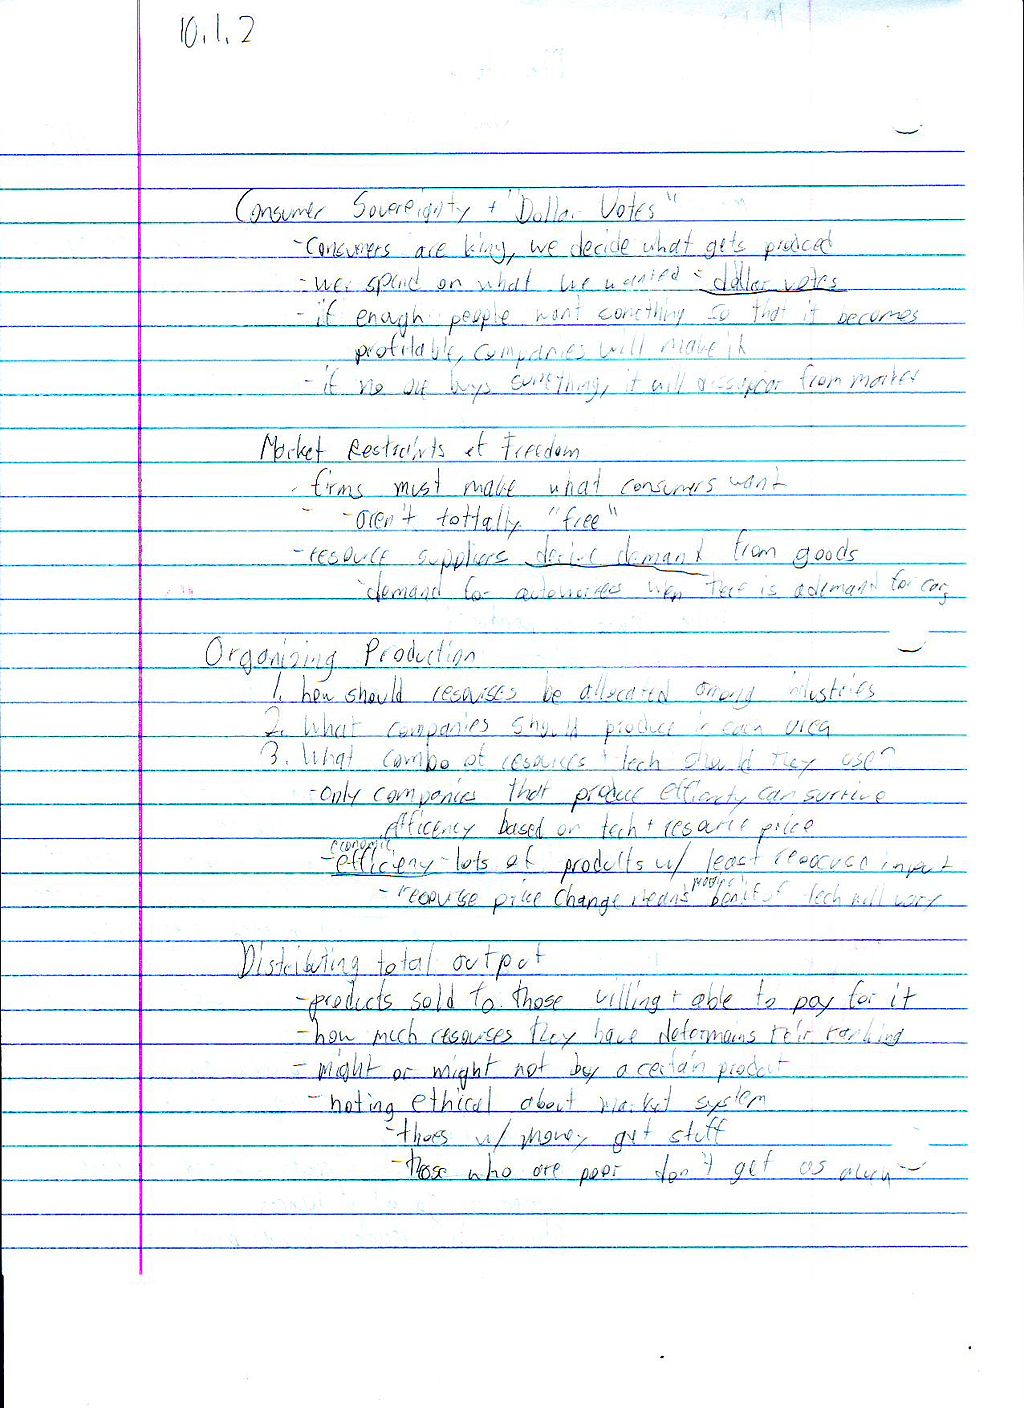 10.1.2
Consumer Sovereignty + "Dollar Votes"
- Consumers are king, we decide what gets produced
- we spend on what we wanted - dollar votes
- if enough people want something so that it becomes
profitable, companies will make it
- if no one buys something, it will dissapior from market
Market Restraints of Freedom
- firms must make what consumers want
- aren't tottally "free"
- resource suppliers derive demand from goods
- demand for when there is a demand for cars
Organizing Production
1. how should resourses be allocated among industries
2. What companies should produce in each area
3. What combo of resources + tech should they use?
- only companies that produce efficienty can survive
efficency based on tech + resource price
economic
- efficieny - lots of products w/ least resource input
- resourse price change means benifit of tech will vary
Distributing total output
- products sold to those willing + able to pay for it
- how much resourses they have determains their ranking
- might or might not buy a certain product
- noting ethical about market system
- thoes w/ money get stuff
- those who are poor don't get as much